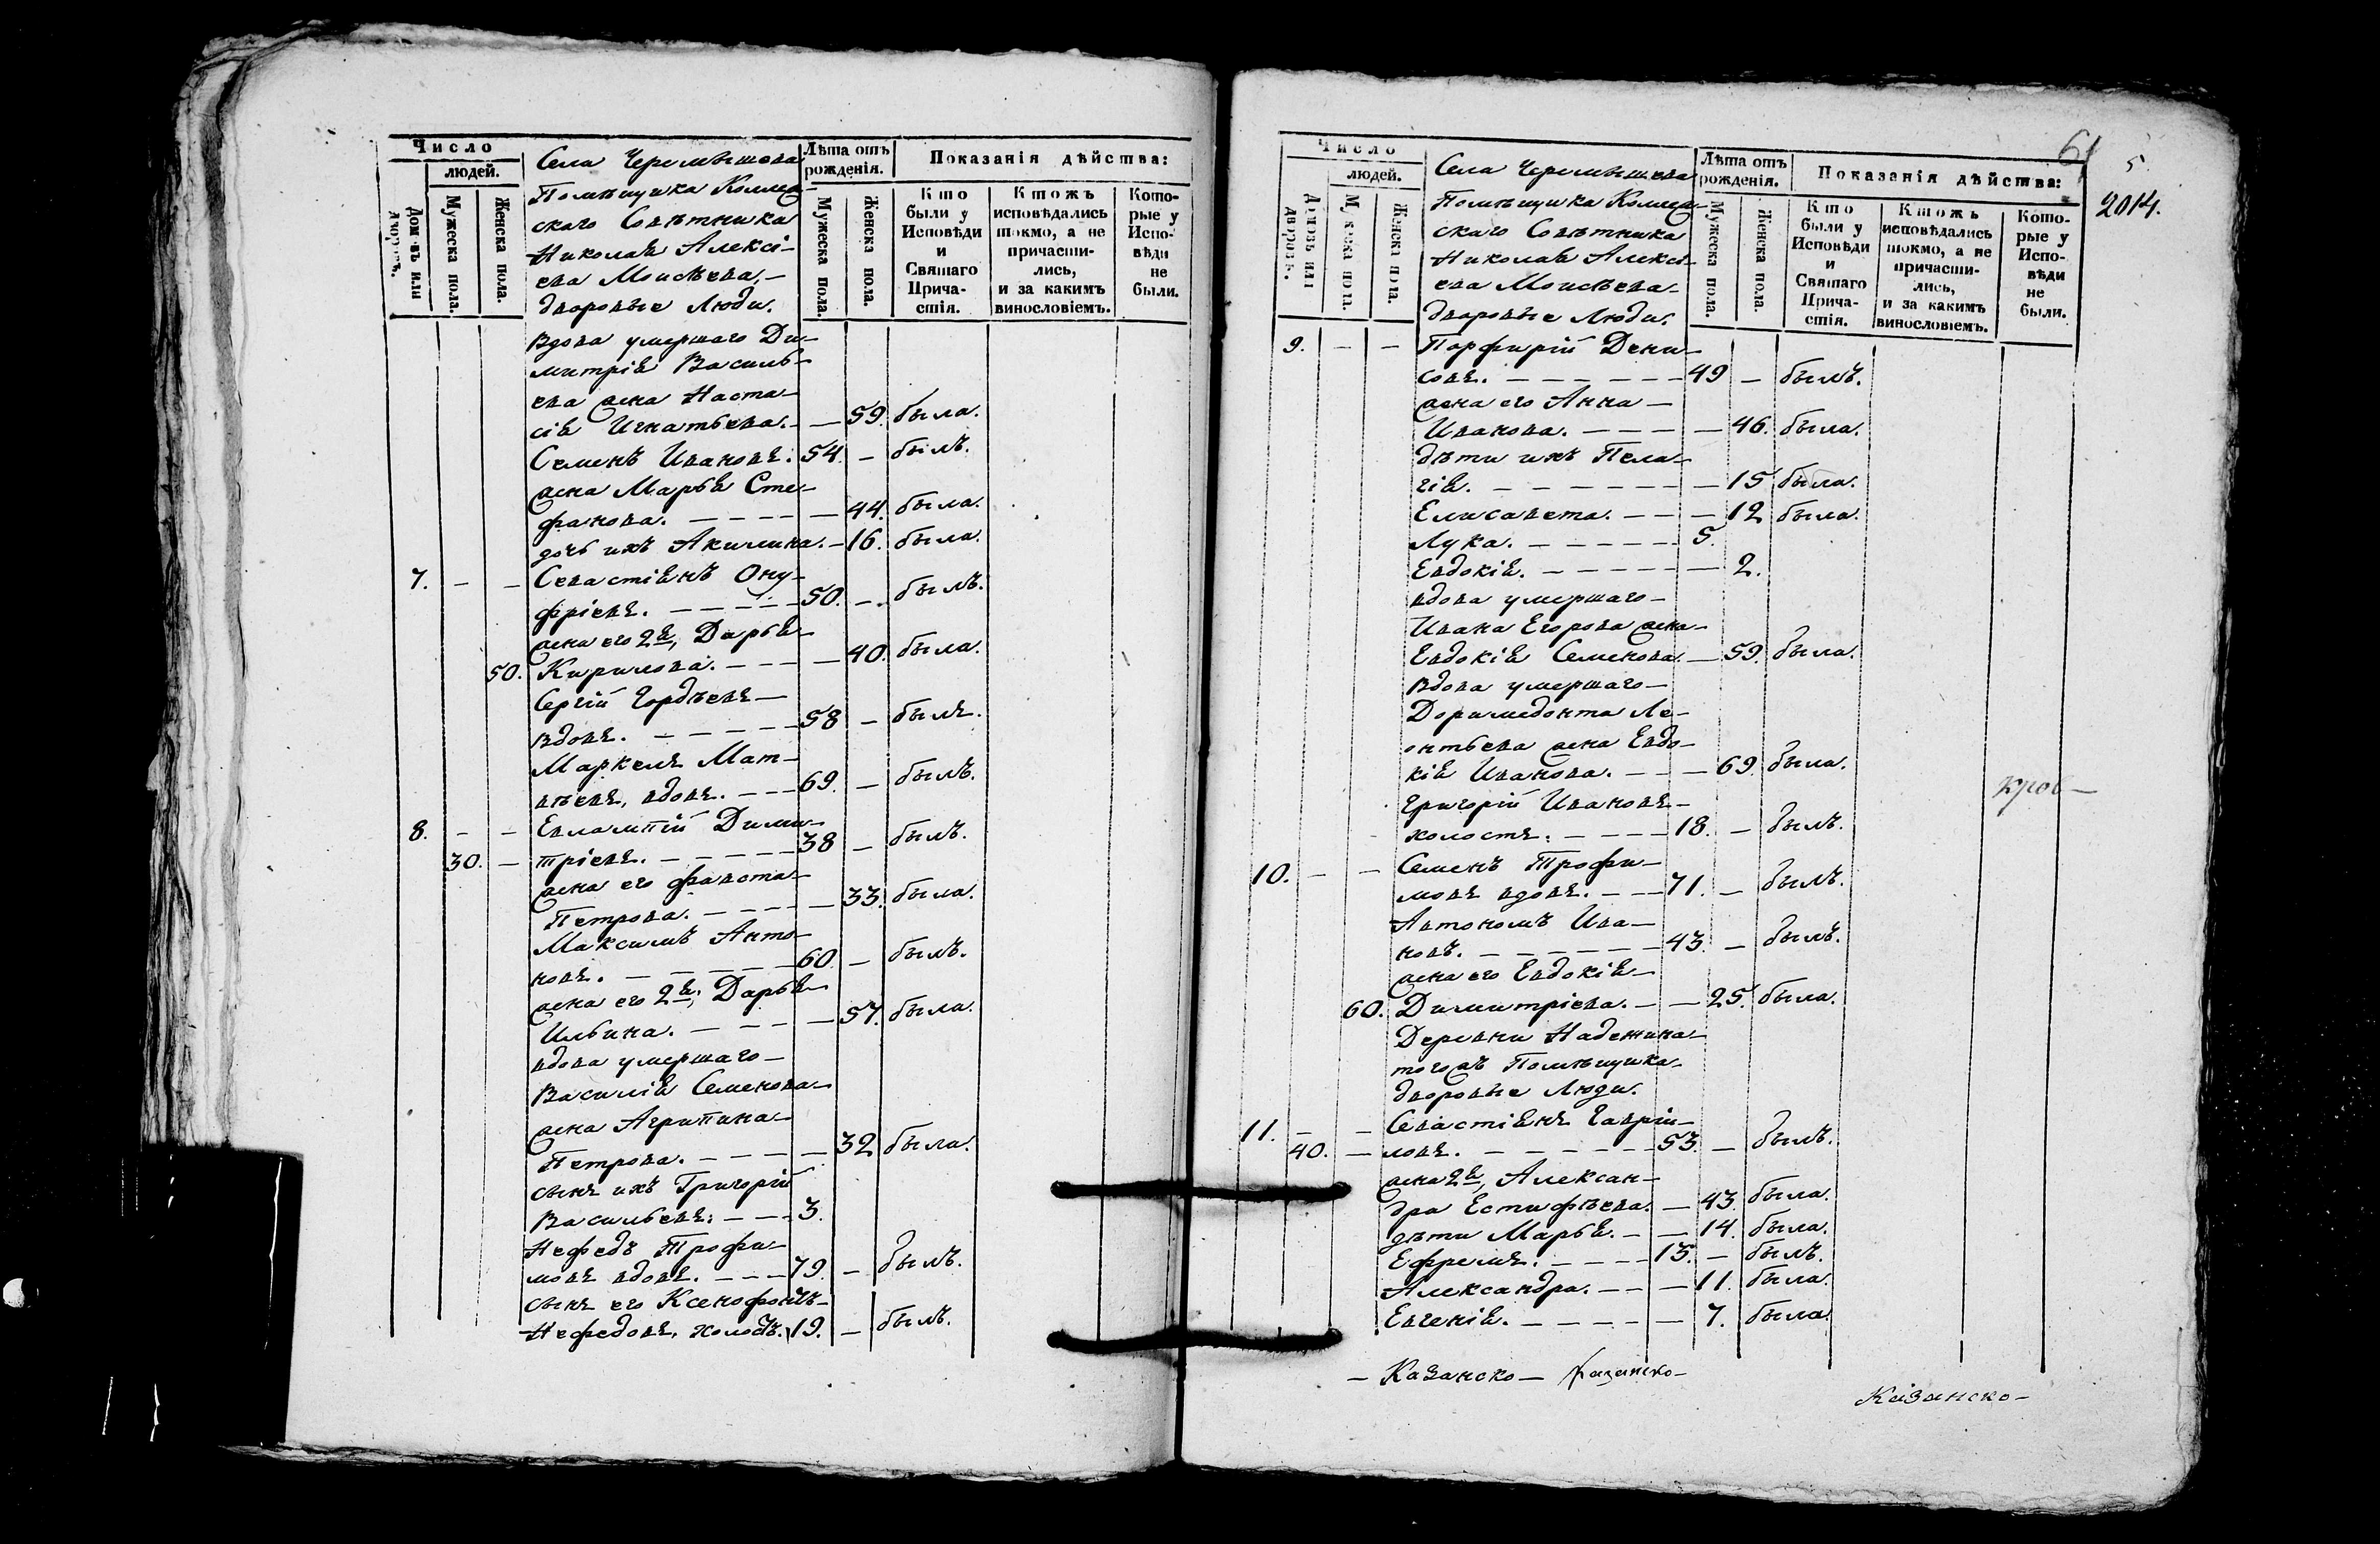 Число
людей.
Домовъ или дворовъ.
Мужеска пола.
Женска пола.
Села Черемѣшова
Помѣщика Коллеж-
скаго Совѣтника
Николая Алексѣ-
ева Моисѣева,-
дворовые Люди.
Лѣта отъ рожденія.
Мужеска пола.
Женска пола.
Показанія дѣйства:
Кто были у Исповѣди и Святаго Прича-стія.
Ктожъ исповѣдались токмо, а не причасти-лись, и за какимъ винословіемъ.
Кото-рые у Испо-вѣди не были.
Вдова умершаго Ди-
митрія Василь-
ева жена Наста-
сія Игнатьева. — 59. была.
Семенъ Ивановъ. 54. — былъ.
жена Марья Сте-
фанова. — 44. была.
дочь ихъ Акилина. — 16. была.
7. — — Севастіянъ Ону-
фріевъ. 50. — былъ.
жена его 2я, Дарья
50. Кирилова. — 40. была.
Сергій Гордѣевъ
вдовъ. 58 — былъ.
Маркелъ Мат-
вѣевъ, вдовъ. 69. — былъ.
8. — — Евлампій Дими-
30. — тріевъ. 38 — былъ.
жена его Фавста
Петрова. — 33. была.
Максимъ Анто-
новъ. 60 — былъ.
жена его 2я, Дарья
Ильина. — 57. была.
вдова умершаго
Василія Семенова
жена Агрипина
Петрова. — 32 была.
сынъ ихъ Григорій
Васильевъ. 3.
Нефедъ Трофи-
мовъ вдовъ. 79. — былъ.
сынъ его Ксенофонтъ
Нефедовъ, холостъ. 19. — былъ.
61
5
2014.
Число
людей.
Домовъ или дворовъ.
Мужеска пола.
Женска пола.
Села Черемѣшова
Помѣщика Коллеж-
скаго Совѣтника
Николая Алексѣ-
ева Моисѣева
дворовые Люди.
Лѣта отъ рожденія.
Мужеска пола.
Женска пола.
Показанія дѣйства:
Кто были у Исповѣди и Святаго Прича-стія.
Ктожъ исповѣдались токмо, а не причасти-лись, и за какимъ винословіемъ.
Кото-рые у Испо-вѣди не были.
9. — — Порфирій Дени-
совъ. 49 — былъ.
жена его Анна
Иванова. — 46. была.
дѣти ихъ Пела-
гія. — 15 была.
Елисавета. — 12 была.
Лука. 5.
Евдокія. — 2.
вдова умершаго
Ивана Егорова жена
Евдокія Семенова. — 59. была.
Вдова умершаго
Доримедонта Ле-
онтьева жена Евдо-
кія Иванова. — 69. была.
Григорій Ивановъ
холостъ. 18. — былъ.
10. — — Семенъ Трофи-
мовъ вдовъ. 71. — былъ.
Автономъ Ива-
новъ. 43. — былъ.
жена его Евдокія
60. Димитріева. — 25. была.
Деревни Надежина
тогожъ Помѣщика
дворовые Люди.
11. — — Севастіянъ Гаврій-
40. — ловъ. 53. — былъ.
жена 2я, Алексан-
дра Естифѣева. — 43. была.
дѣти Марья. — 14. была.
Ефремъ. 13. — былъ.
Александра. — 11. была.
Евгенія. — 7. была.
— Казанско — Казанско —
Казанско —